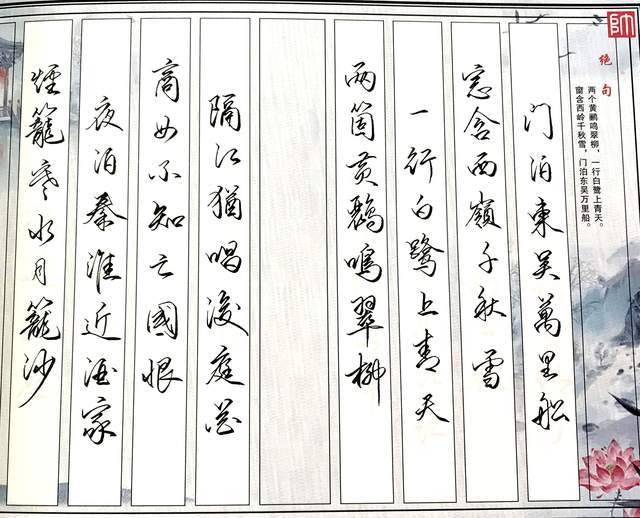 煙籠寒水月籠沙
夜泊秦淮近酒家
商女不知亡國恨
隔江猶唱後庭花
两箇黄鸝鳴翠柳
一行白鹭上青天
窓含西嶺千秋雪
门泊東吴萬里船
绝句
两个黄鹂鸣翠柳，一行白鹭上青天。
窗含西岭千秋雪，门泊东吴万里船。
帅